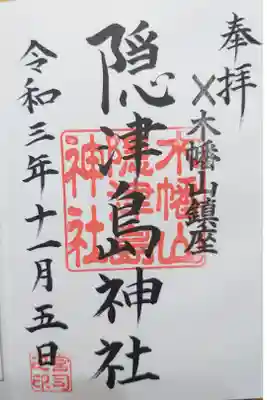 奉拝
木幡山鎮座
隠津島神社
令和三年十一月五日
木幡山
隠津島
神社
宮司
之印